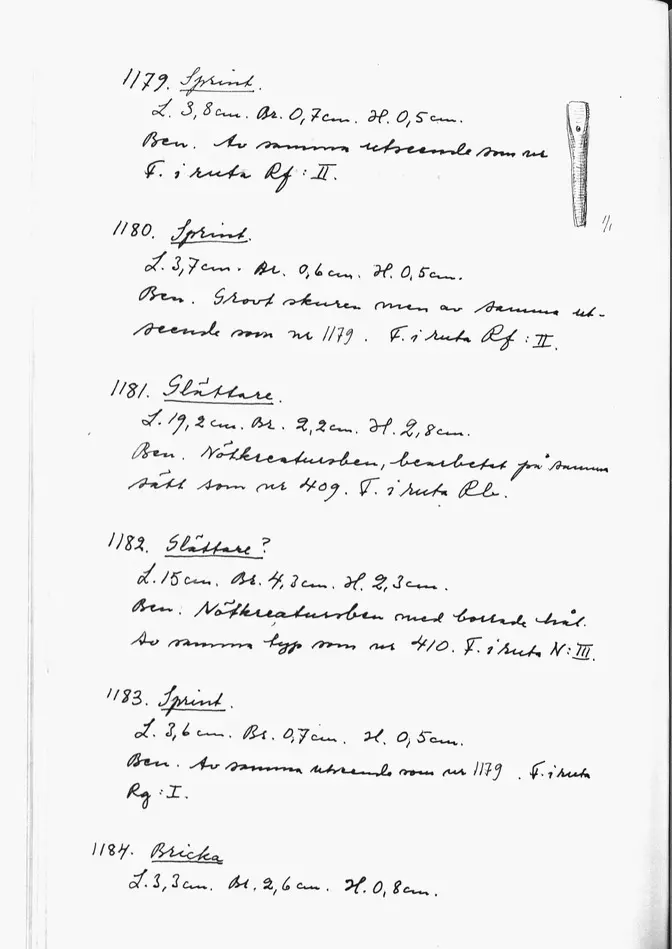 1179. Sprint.
L. 3,8cm. Br. 0,7cm. H. 0,5cm.
Ben. Av samma utseende som nr
F. i ruta Rf : II.
1/1
1180. Sprint.
L. 3,7cm. Br. 0,6cm. H. 0,5cm.
Ben. Grovt skuren men av samma ut-
seende som nr 1179. F. i ruta Rf : II.
1181. Glättare.
L. 19,2cm. Br. 2,2cm. H. 2,8cm.
Ben. Nötkreatursben, bearbetat på samma
sätt som nr 409. F. i ruta Rb.
1182. Glättare?
L. 15cm. Br. 4,3cm. H. 2,3cm.
Ben. Nötkreatursben med borrade hål.
Av samma typ som nr 410. F. i ruta N:III.
1183. Sprint.
L. 3,6cm. Br. 0,7cm. H. 0,5cm.
Ben. Av samma utseende som nr 1179. F. i ruta
Rg : I.
1184. Bricka
L. 3,3cm. Br. 2,6cm. H. 0,8cm.